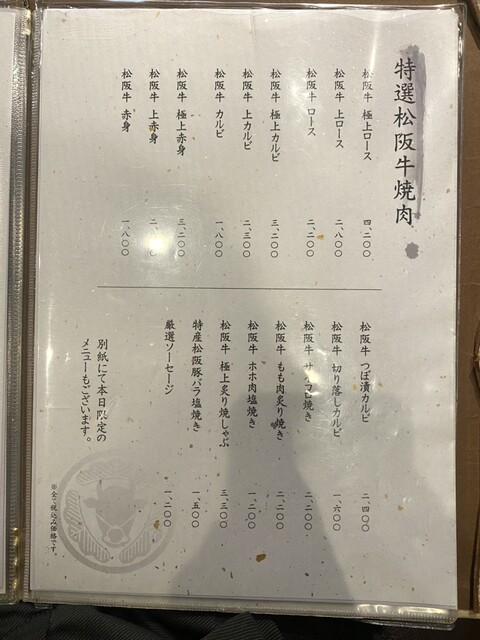 特選松阪牛焼肉
松阪牛 極上ロース 四、二〇〇
松阪牛 上ロース 二、八〇〇
松阪牛 ロース 二、二〇〇
松阪牛 極上カルビ 三、二〇〇
松阪牛 上カルビ 二、三〇〇
松阪牛 カルビ 一、八〇〇
松阪牛 極上赤身 三、二〇〇
松阪牛 上赤身 二、
松阪牛 赤身 一、八〇〇
松阪牛 つぼ漬カルビ 二、四〇〇
松阪牛 切り落しカルビ 一、六〇〇
松阪牛 サイコロ焼き 二、二〇〇
松阪牛 もも肉炙り焼き 二、二〇〇
松阪牛 ホホ肉塩焼き 一、二〇〇
松阪牛 極上炙り焼しゃぶ 三、三〇〇
特産松阪豚バラ塩焼き 一、五〇〇
厳選ソーセージ 一、二〇〇
別紙にて本日限定の
メニューもございます。
※全て税込み価格です。